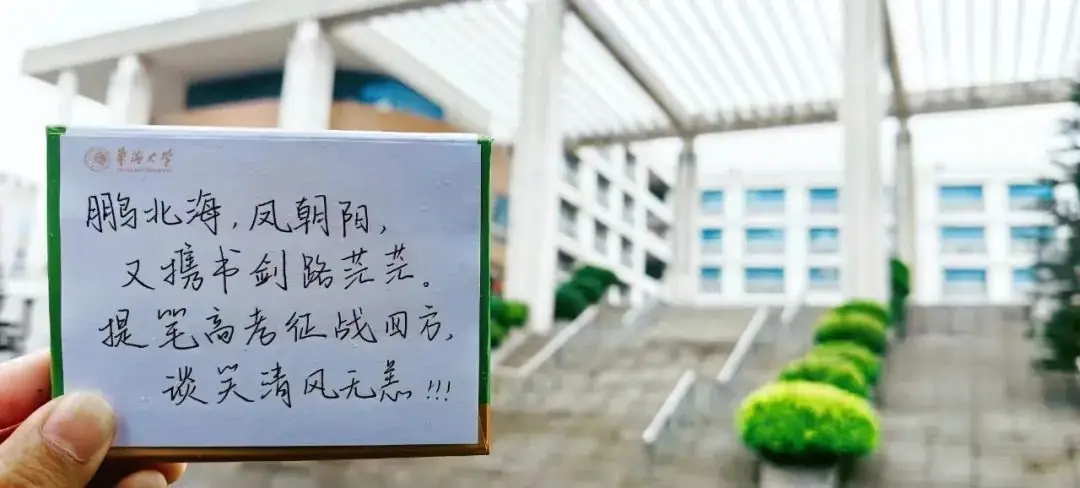 鹏北海，凤朝阳，
又携书剑路茫茫。
提笔高考征战四方，
谈笑清风无恙!!!